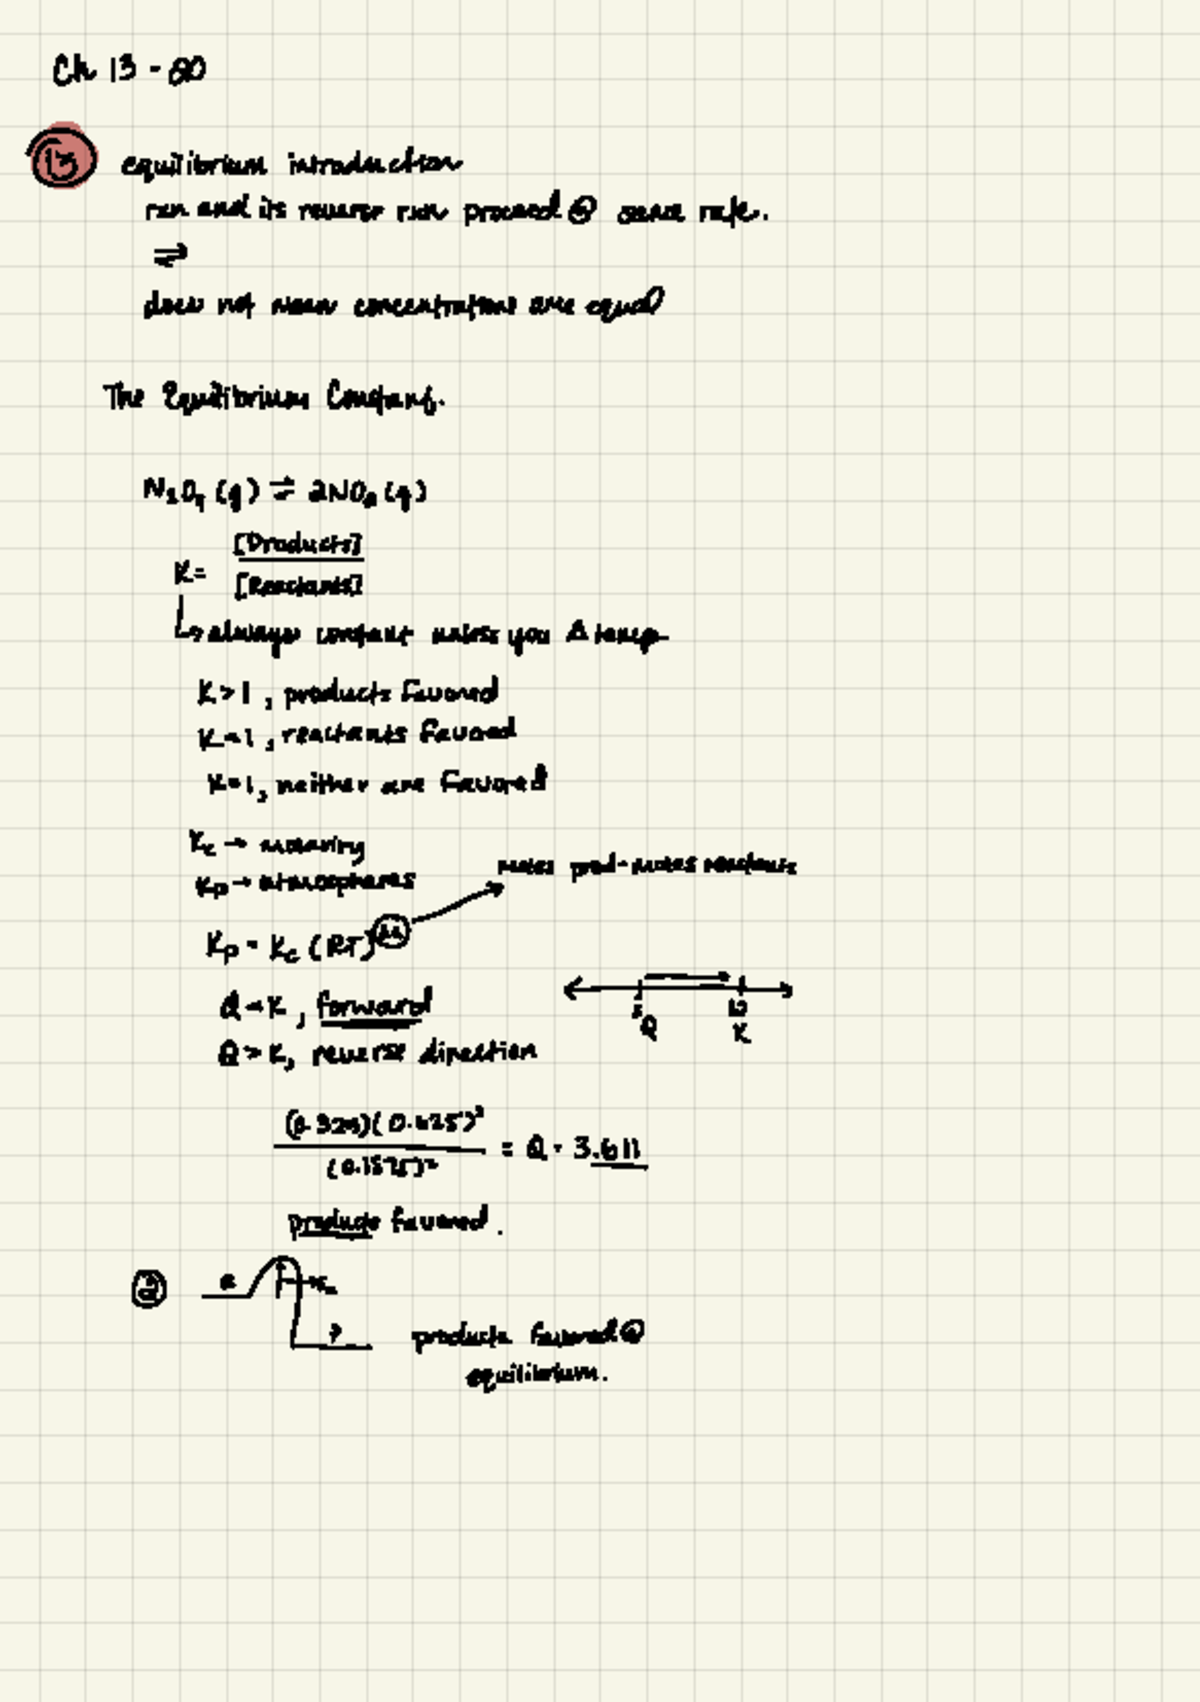 Ch 13 - 20
13 equilibrium introduction
rxn and its reverse rxn proceed @ same rate.
⇌
does not mean concentrations are equal
The Equilibrium Constant.
N2O4 (g) ⇌ 2NO2 (g)
K = [Products] / [Reactants]
↳ always constant unless you Δ temp
K > 1, products favored
K < 1, reactants favored
K = 1, neither are favored
Kc → molarity
Kp → atmospheres
moles prod - moles reactants
Kp = Kc (RT)^Δn
Q < K, forward
Q K
Q > K, reverse direction
= Q = 3.611
products favored.
R Ea
P products favored @
equilibrium.